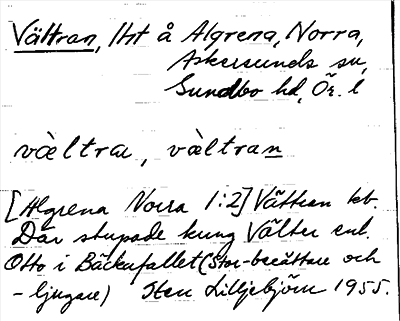 Vältran, lht å Algrena, Norra,
Askersunds sn,
Sundbo hd, Ör. l
vàltra, vàltran
[Algrena Norra 1:2] Vältran kb.
Där stupade kung Välter enl.
Otto i Bäckafallet (Stor-berättare och
-ljugare) Sten Lilljebjörn 1955.